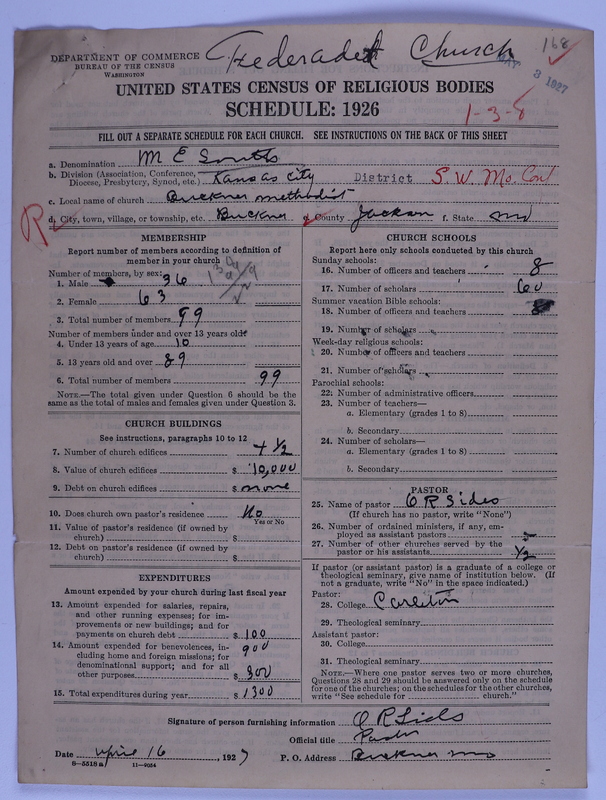 Federated Church
168
DEPARTMENT OF COMMERCE
BUREAU OF THE CENSUS
WASHINGTON
MAY 3 1927
UNITED STATES CENSUS OF RELIGIOUS BODIES
SCHEDULE: 1926
1-3-8
FILL OUT A SEPARATE SCHEDULE FOR EACH CHURCH. SEE INSTRUCTIONS ON THE BACK OF THIS SHEET
a. Denomination M E South
b. Division (Association, Conference, Diocese, Presbytery, Synod, etc.) Kansas City District S. W. Mo. Con
c. Local name of church Buckner methodist
d. City, town, village, or township, etc. Buckner e. County Jackson f. State Mo
R
MEMBERSHIP
Report number of members according to definition of
member in your church
Number of members, by sex:
1. Male 36
2. Female 63
3. Total number of members 99
Number of members under and over 13 years old:
4. Under 13 years of age 10
5. 13 years old and over 89
6. Total number of members 99
NOTE.—The total given under Question 6 should be the
same as the total of males and females given under Question 3.
CHURCH BUILDINGS
See instructions, paragraphs 10 to 12
7. Number of church edifices 1/2
8. Value of church edifices $ 10,000
9. Debt on church edifices $ none
10. Does church own pastor's residence No
Yes or No
11. Value of pastor's residence (if owned by
church) $
12. Debt on pastor's residence (if owned by
church) $
EXPENDITURES
Amount expended by your church during last fiscal year
13. Amount expended for salaries, repairs,
and other running expenses; for im-
provements or new buildings; and for
payments on church debt $ 100
900
14. Amount expended for benevolences, in-
cluding home and foreign missions; for
denominational support; and for all
other purposes $ 300
15. Total expenditures during year $ 1300
CHURCH SCHOOLS
Report here only schools conducted by this church
Sunday schools:
16. Number of officers and teachers 8
17. Number of scholars 60
Summer vacation Bible schools:
18. Number of officers and teachers
19. Number of scholars
Week-day religious schools:
20. Number of officers and teachers
21. Number of scholars
Parochial schools:
22. Number of administrative officers
23. Number of teachers—
a. Elementary (grades 1 to 8)
b. Secondary
24. Number of scholars—
a. Elementary (grades 1 to 8)
b. Secondary
PASTOR
25. Name of pastor O R Sides
(If church has no pastor, write "None")
26. Number of ordained ministers, if any, em-
ployed as assistant pastors
27. Number of other churches served by the
pastor or his assistants 1/2
If pastor (or assistant pastor) is a graduate of a college or
theological seminary, give name of institution below. (If
not a graduate, write "No" in the space indicated.)
Pastor:
28. College Carleton
29. Theological seminary
Assistant pastor:
30. College
31. Theological seminary
NOTE.—Where one pastor serves two or more churches,
Questions 28 and 29 should be answered only on the schedule
for one of the churches; on the schedules for the other churches,
write "See schedule for church."
Signature of person furnishing information O R Sides
Official title Pastor
Date April 16, 1927 P. O. Address Buckner Mo
8-5518 a 11-9034